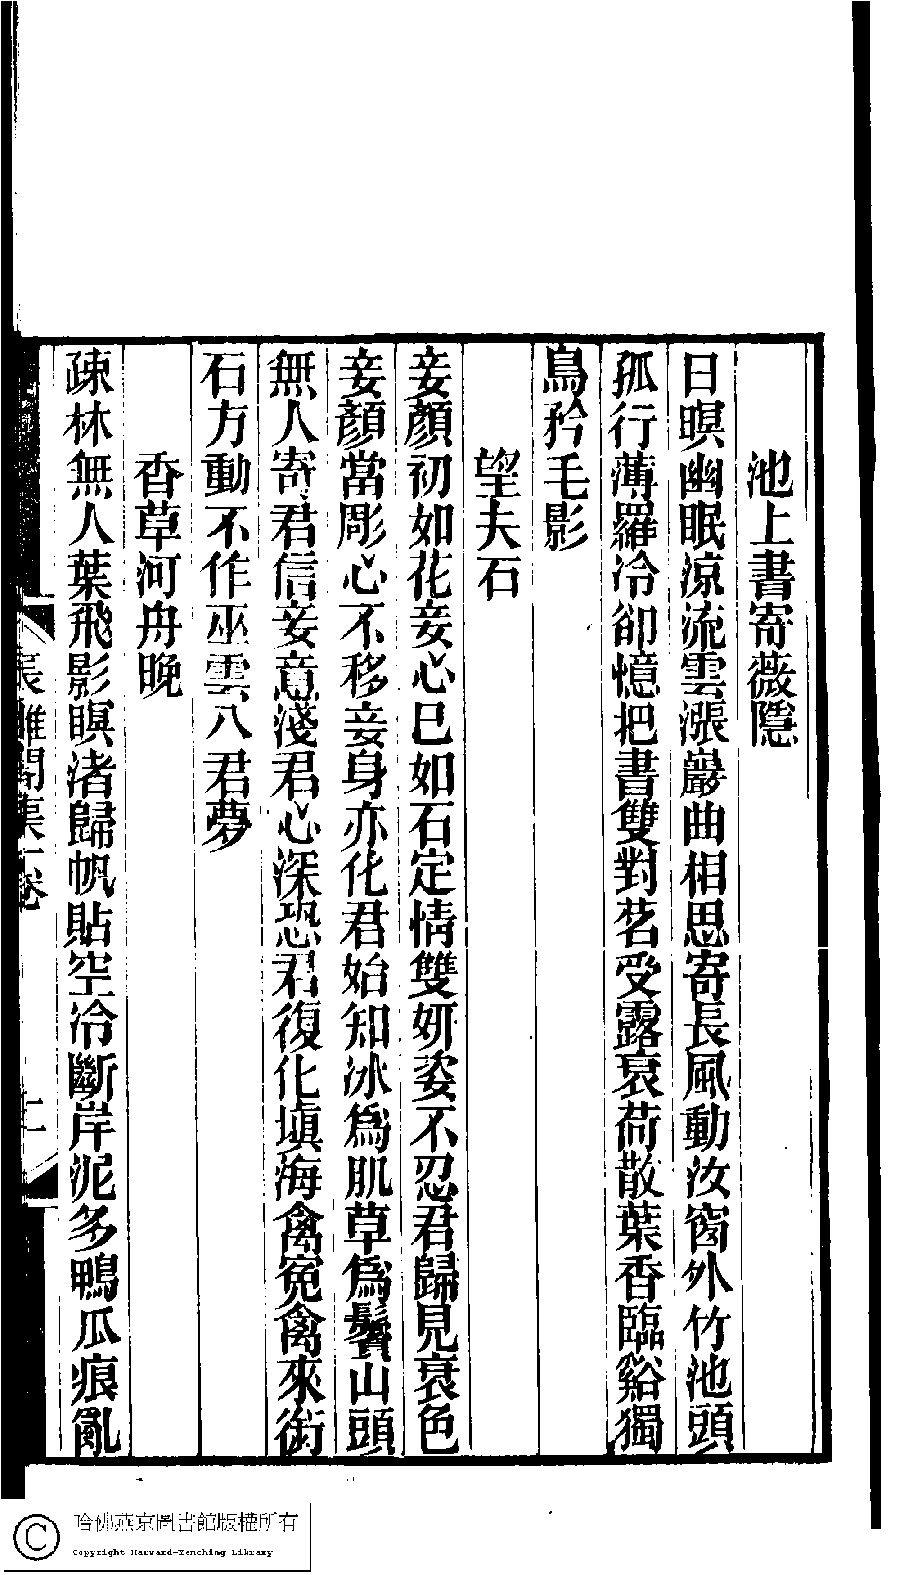 池上書寄薇隱
日暝幽眠涼流雲漲巖曲相思寄長風動汝窗外竹池頭
孤行薄羅冷卻憶把書雙對茗受露衰荷散葉香臨谿獨
鳥矜毛影
望夫石
妾顏初如花妾心已如石定情雙妍姿不忍君歸見衰色
妾顏當彫心不移妾身亦化君始知冰爲肌草爲鬟山頭
無人寄君信妾意淺君心深恐君復化塡海禽寃禽來銜
石方動不作巫雲入君夢
香草河舟晚
疎林無人葉飛影暝渚歸帆貼空冷斷岸泥多鴨瓜痕亂
長離閣集一卷
哈佛燕京圖書館版權所有
Copyright Harvard-Yenching Library